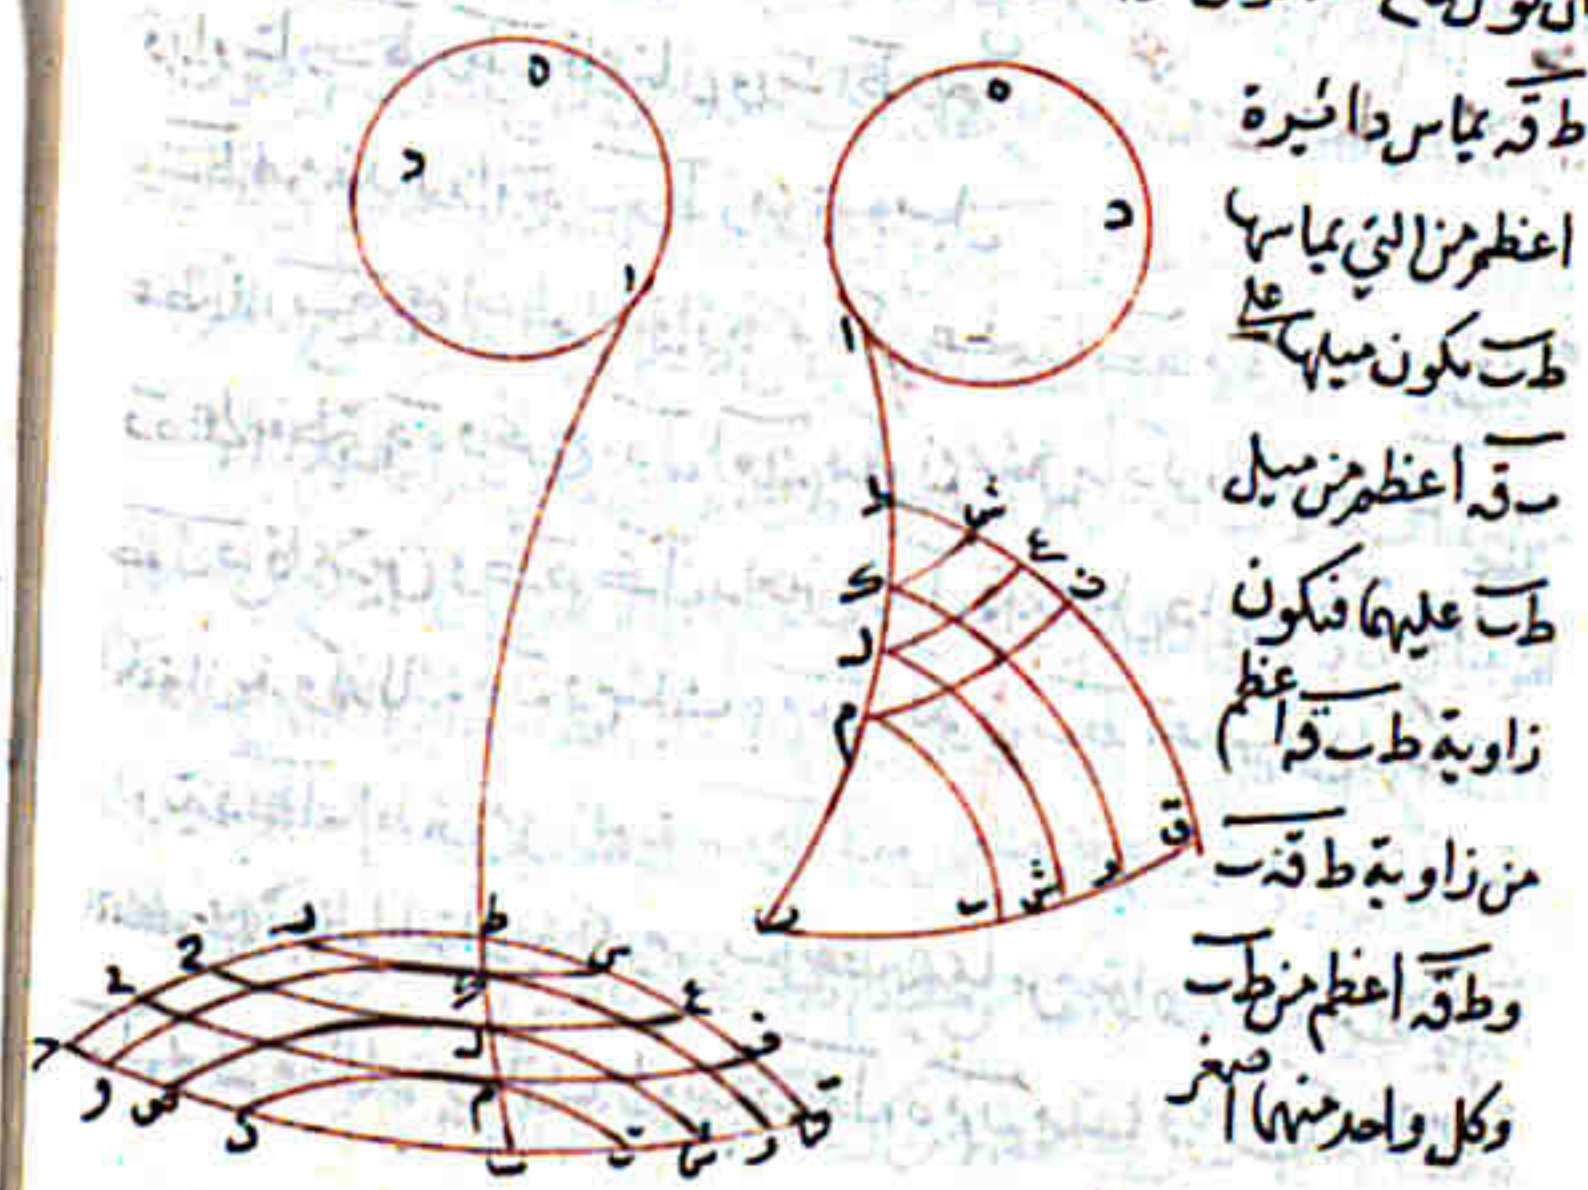 ط ق يماس دائرة
اعظم من التي يماسها
ط ب يكون ميلها على
ب ق اعظم من ميل
ط ب عليها فتكون
زاوية ط ب ق اعظم
من زاوية ط ق ب
و ط ق اعظم من ط ب
وكل واحد منهما اصغر
ه
د
ا
ه
د
ا
ط
ش
ع
ف
ك
ل
م
ق
ر
ش
ت
ب
ط
س
ع
ف
ك
ل
م
و
ص
ق
ر
ت
ب